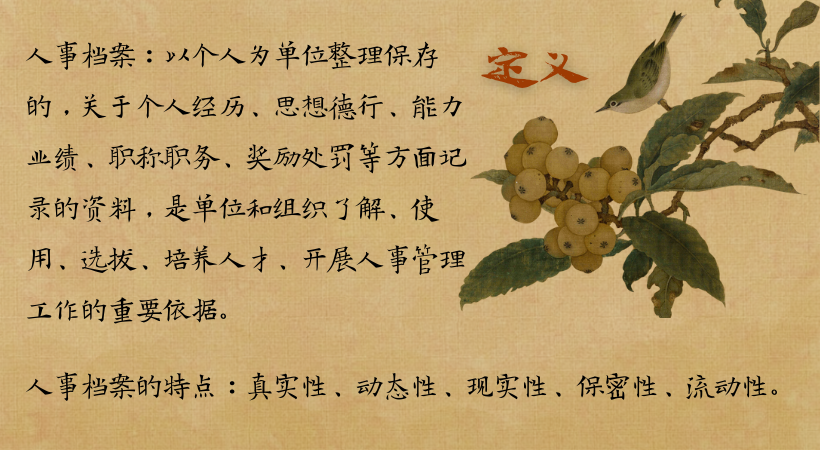 定义
人事档案：以个人为单位整理保存
的，关于个人经历、思想德行、能力
业绩、职称职务、奖励处罚等方面记
录的资料，是单位和组织了解、使
用、选拔、培养人才、开展人事管理
工作的重要依据。
人事档案的特点：真实性、动态性、现实性、保密性、流动性。